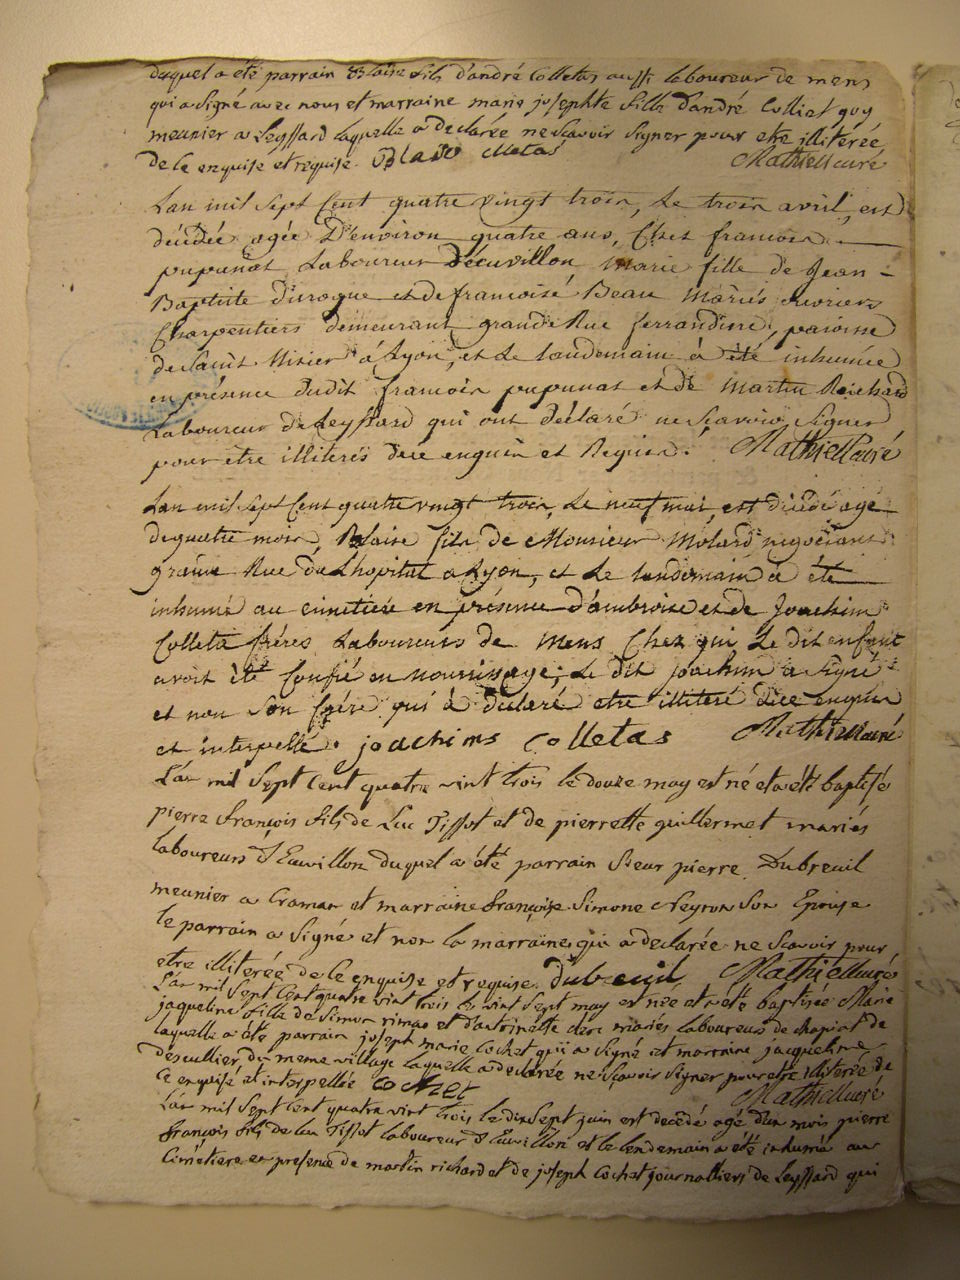 duquel a été parrain Blaise fils d'andré Colletas aussi laboureur de mens
qui a signé avec nous et marraine marie josephte fille d'andré Colliat guy
meunier a Leyssard laquelle a déclarée ne scavoir signer pour etre illiterée
de ce enquise et requise. Blaise colletas Mathieu curé
Lan mil sept Cent quatre vingt trois, Le trois avril, est
décédée agée D'environ quatre ans, Chez francois
pupunat Laboureur D'écuvillon marie fille de Jean-
Baptiste durogue et de francoise Beau mariés ouvriers
Charpentiers demeurant grande Rue ferrandiere, paroisse
de saint Nizier à Lyon, et Le landemain à été inhumée
en présence dudit francois pupunat et de martin Reichard
Laboureur de Leyssard qui ont déclaré ne scavoir signer
pour etre illiterés de ce enquis et Requis. Mathieu Curé
Lan mil sept Cent quatre vingt trois, Le neuf mai, est décédé agé
de quatre mois, Blaise fils de Monsieur Molard negociant
grande Rue de Lhopital a Lyon, et Le landemain à été
inhumé au cimetiere en présence d'ambroise et de Joachim
Colleta fréres Laboureurs de mens Chez qui Le dit enfant
avoit été Confié en nourrissage; Le dit joachim a signé
et non son frére qui à déclaré etre illiteré de ce enquis
et interpellé. joachims colletas Mathieu curé
L'an mil sept cent quatre vint trois le douze may est né et a été baptisé
pierre francois fils de Luc Tissot et de pierrette guillermet mariés
laboureurs d'Ecuvillon duquel a été parrain Sieur pierre Dubreuil
meunier a Cramans et marraine françoise Simone Neyron son Epouse
le parrain a signé et non la marraine qui a declarée ne scavoir pour
etre illiterée de ce enquise et requise. dubreuil Mathieu curé
L'an mil sept cent quatre vint trois le vint sept may est née et a été baptisée Marie
jaqueline fille de Simon rimao et d'antoinette mariés laboureurs de chapiat de
laquelle a été parrain joseph marie Cochet qui a signé et marraine jacqueline
descullier du meme village laquelle a declarée ne scavoir signer pour etre illiterée de
ce enquise et interpellée Cochet Mathieu curé
L'an mil sept cent quatre vint trois le dix sept juin est decédé agé d'un mois pierre
françois fils de luc Tissot laboureur d'Ecuvillon et le lendemain a été inhumé au
cimetiere en presence de martin richard et de joseph Cochet journalliers de Leyssard qui